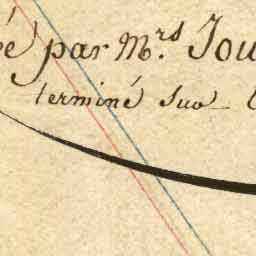 é par M.rs Jou
terminé sur